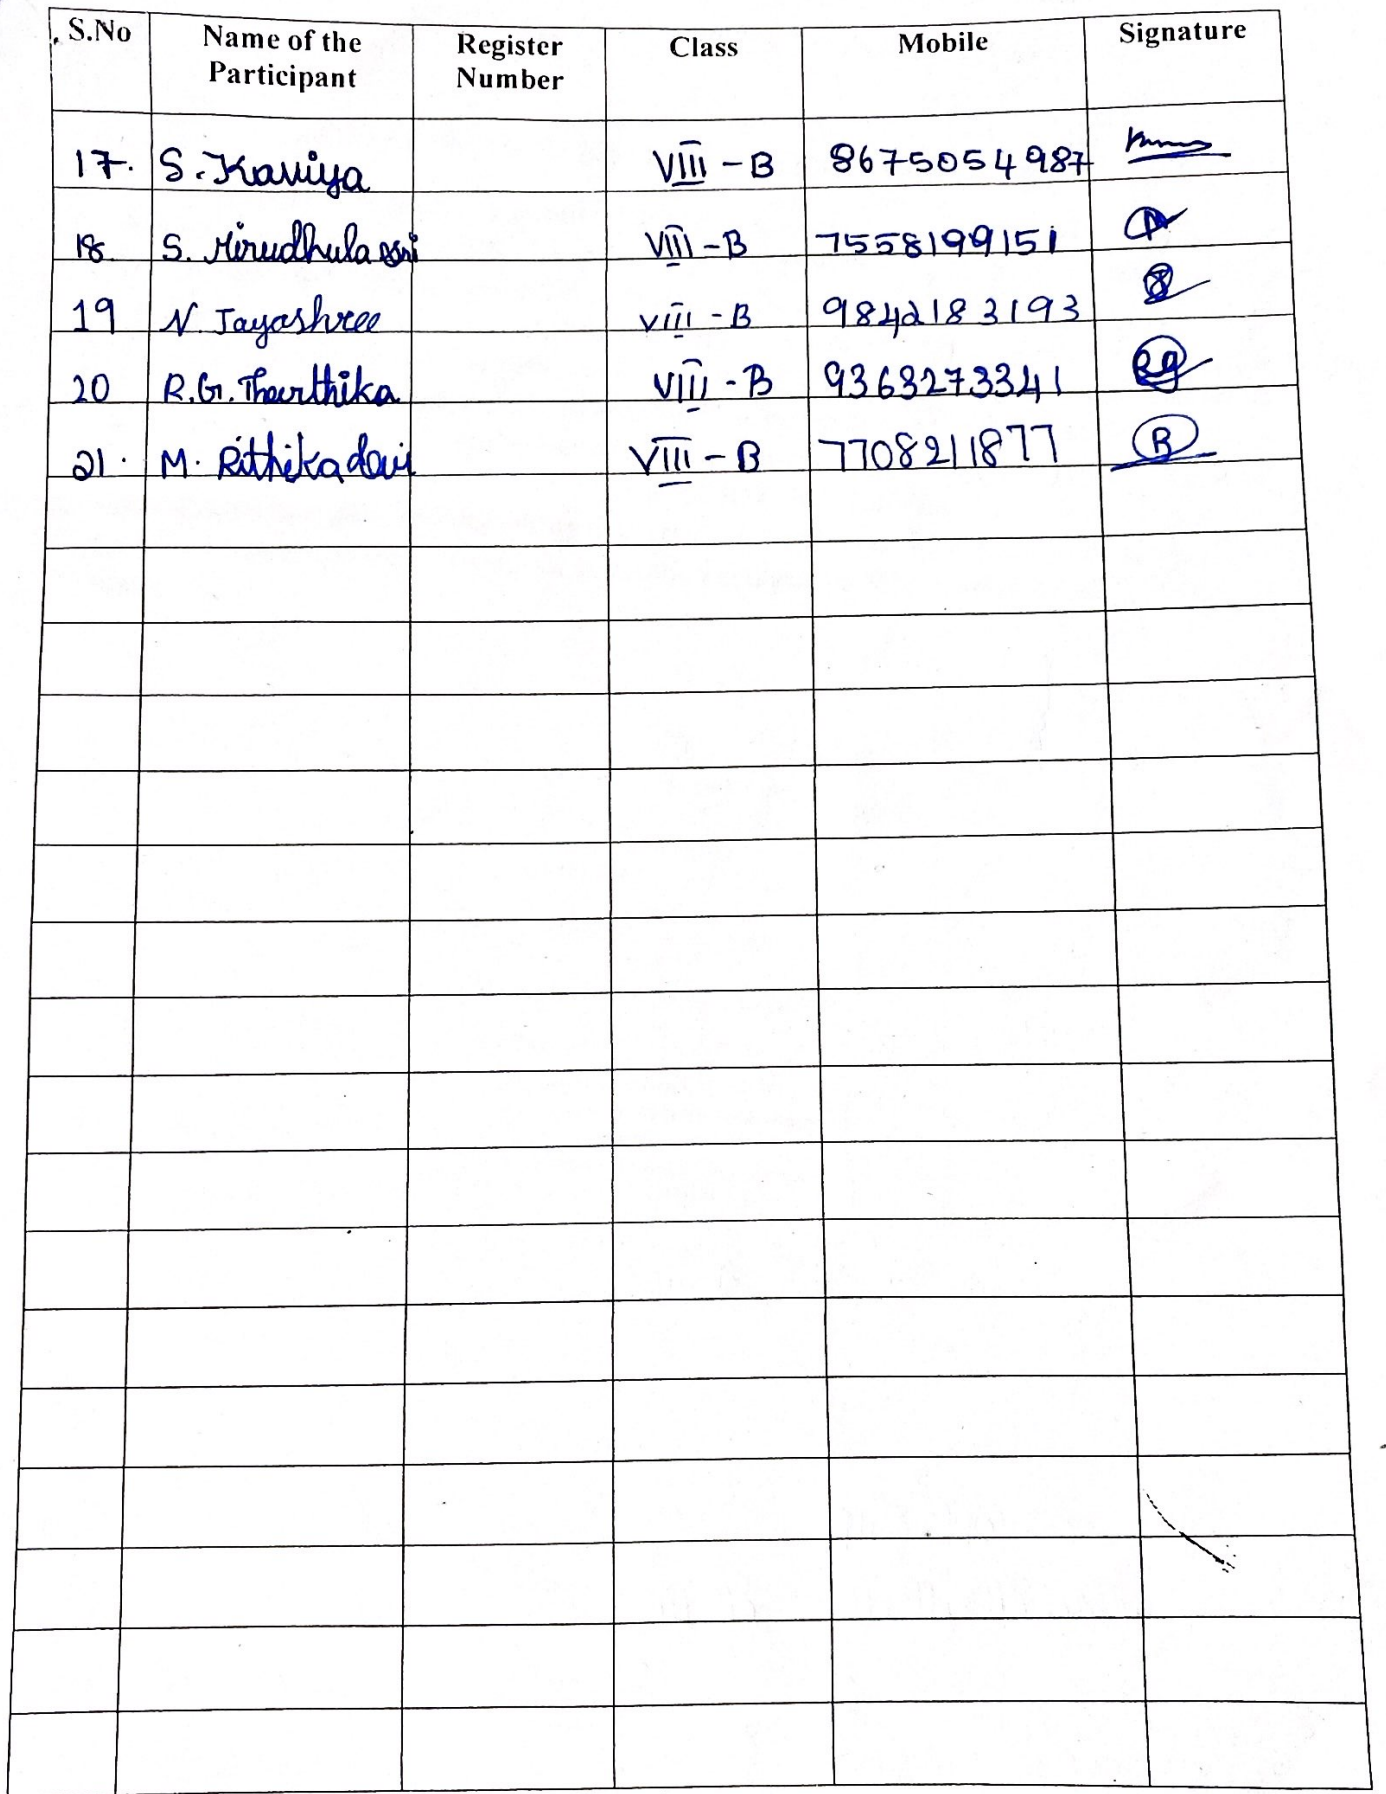 S.No Name of the Participant Register Number Class Mobile Signature
17. S. Kaviya VIII - B 8675054987
18. S. Mirudhula sri VIII - B 7558199151
19 N. Jayashree VIII - B 9842183193
20 R.G. Tharthika VIII - B 9363273341 Rg
21. M. Rithika devi VIII - B 7708211877 R